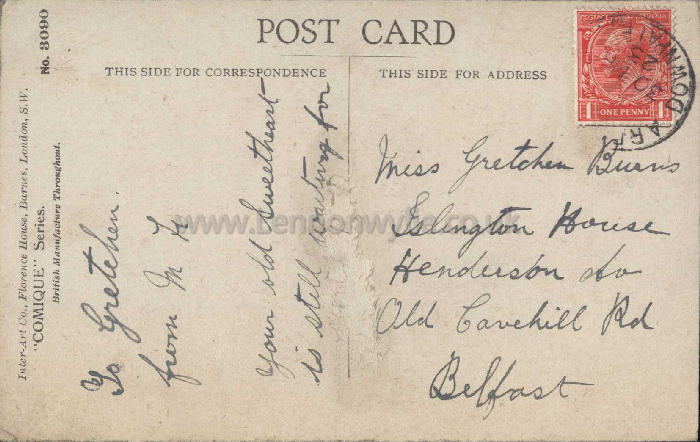 POST CARD
THIS SIDE FOR CORRESPONDENCE
THIS SIDE FOR ADDRESS
No. 3090
Inter-Art Co., Florence House, Barnes, London, S.W.
"COMIQUE" Series.
British Manufacture Throughout.
To Gretchen.
from M
Your old Sweetheart
is still waiting for
ONE PENNY
1
1
Miss Gretchen Burns
Islington House
Henderson Av
Old Cavehill Rd
Belfast